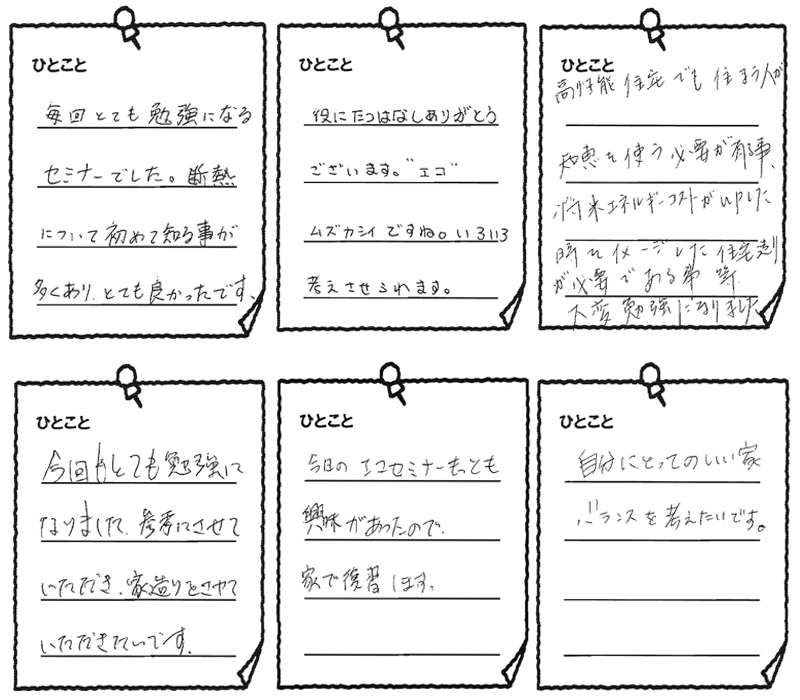 ひとこと
毎回とても勉強になる
セミナーでした。断熱
について初めて知る事が
多くあり、とても良かったです。
ひとこと
役にたつはなしありがとう
ございます。"エコ"
ムズカシイですね。いろいろ
考えさせられます。
ひとこと
高性能住宅でも住まう人が
知恵を使う必要が有る事、
将来エネルギーコストがUPした
時をイメージした住宅造り
が必要である事 等
大変勉強になりました
ひとこと
今回もとても勉強に
なりました。参考にさせて
いただき、家造りをさせて
いただきたいです。
ひとこと
今日のエコセミナーもっとも
興味があったので、
家で復習します。
ひとこと
自分にとってのいい家
バランスを考えたいです。